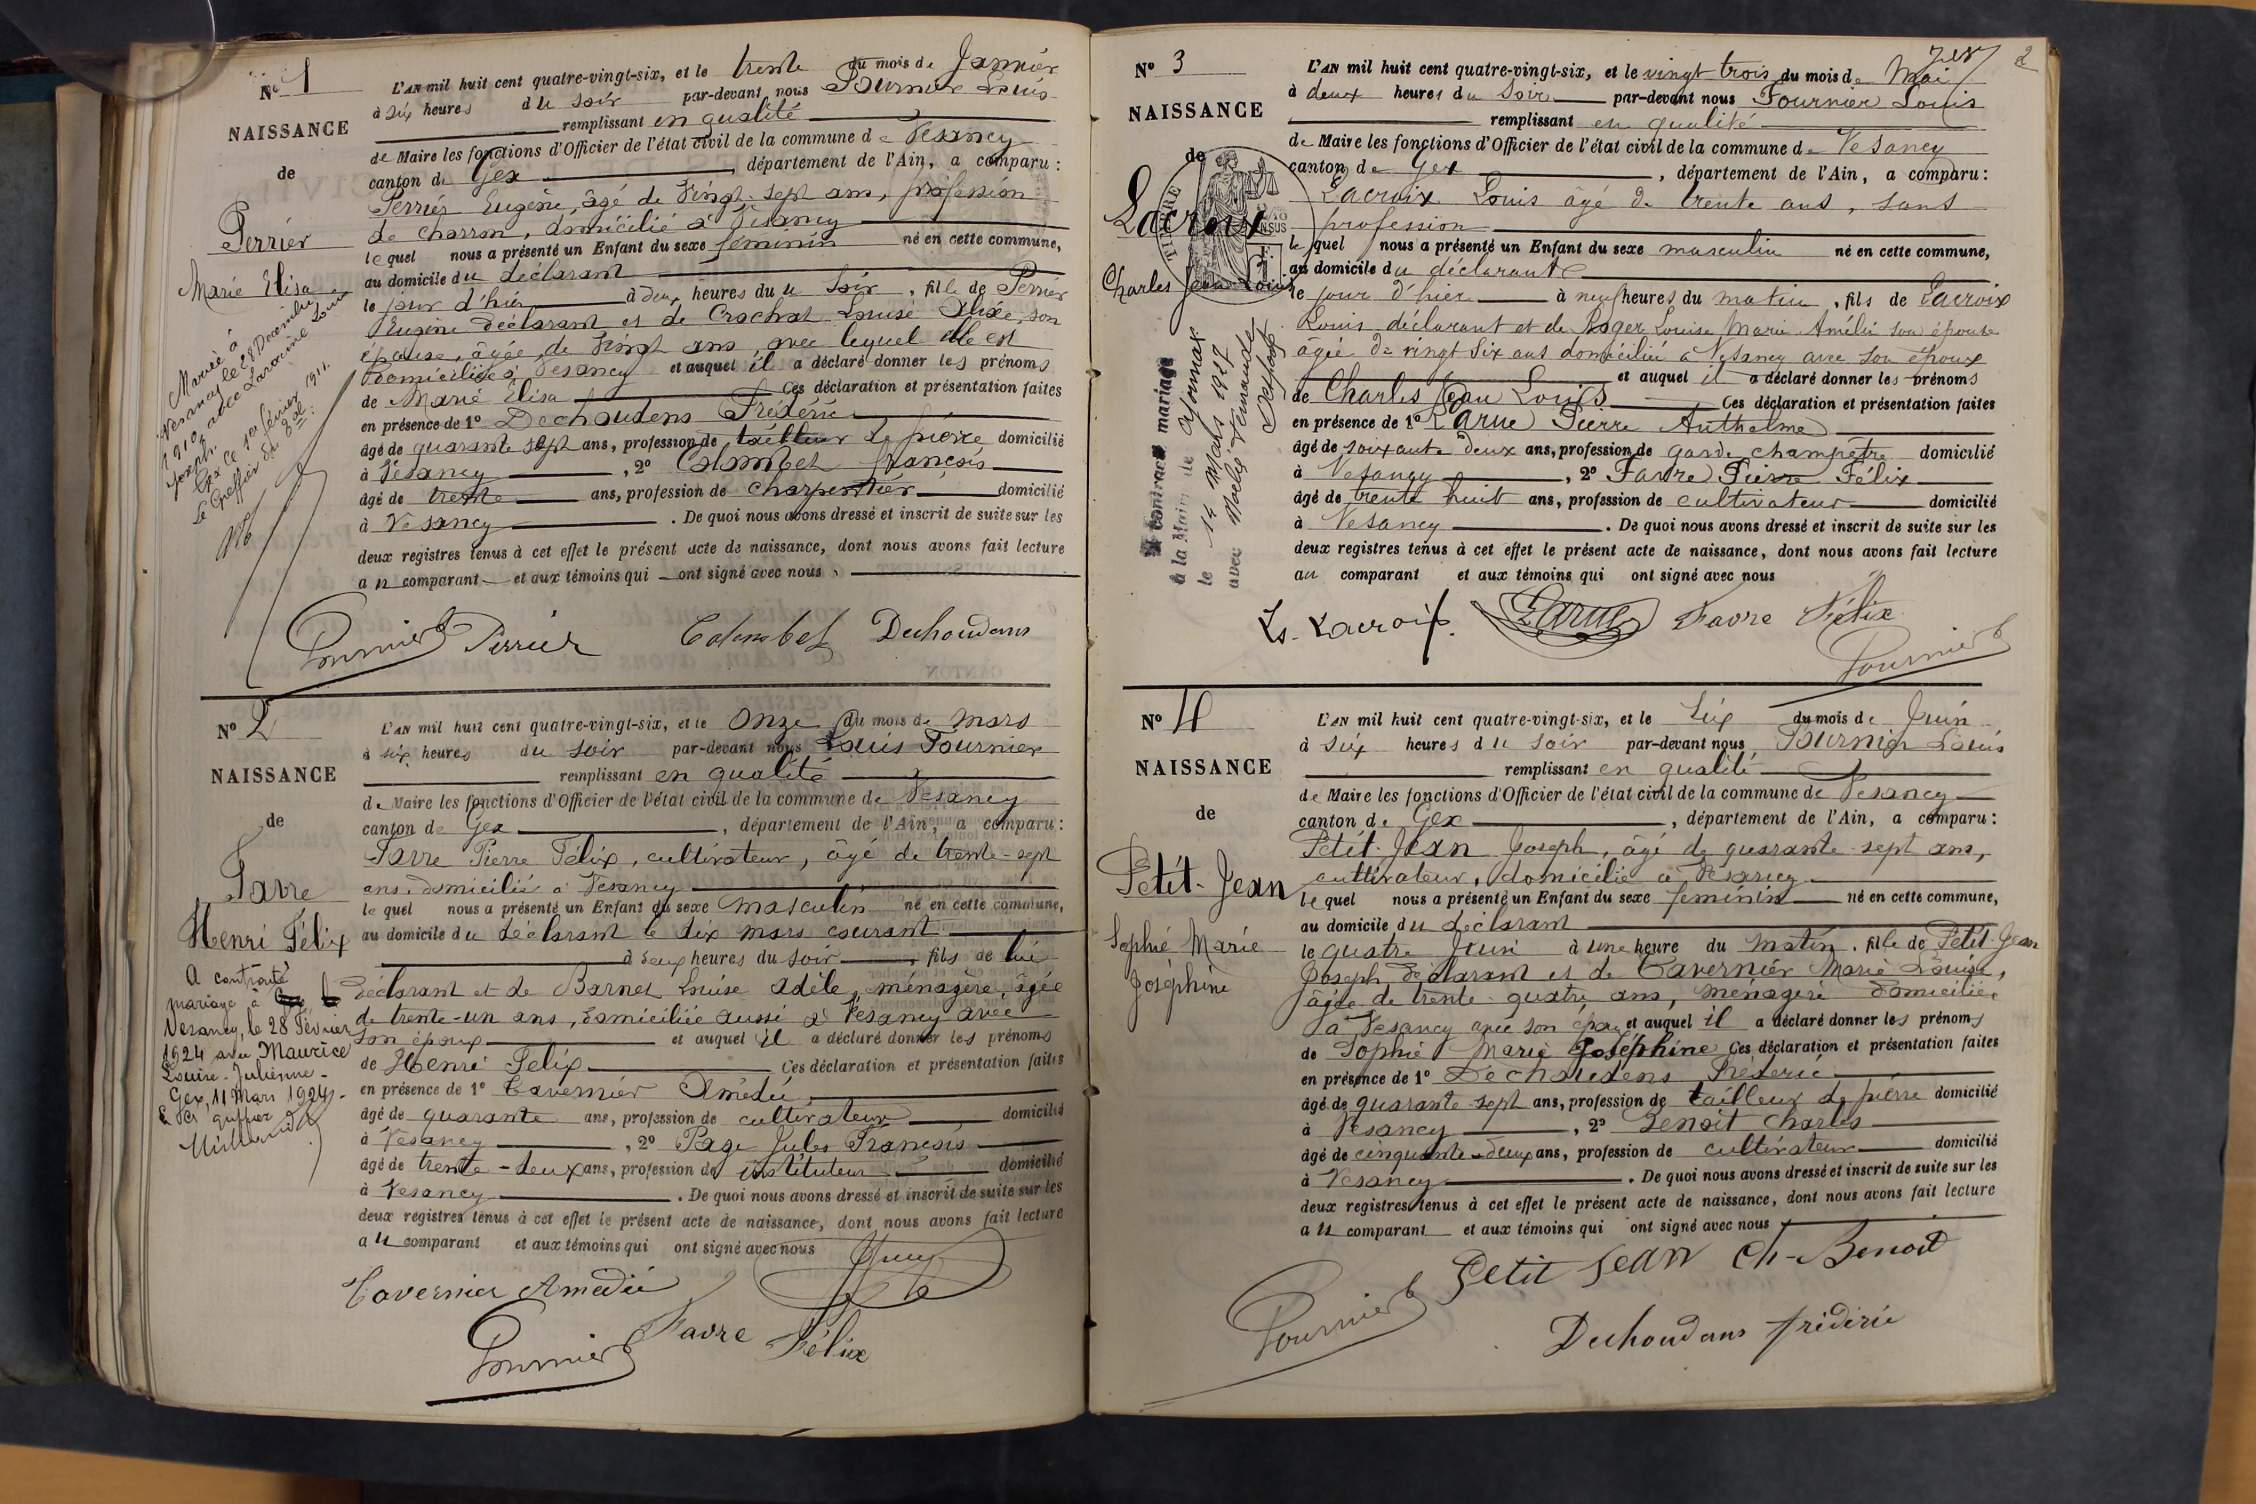 N° 1
NAISSANCE
de
Perrier
Marie Elisa
Mariée à
Vesancy le 28 Décembre
1910 avec Lavoine Louis
Joseph.
Gex ce 1er février 1911.
Le Greffier du
L'AN mil huit cent quatre-vingt-six, et le trente du mois de Janvier
à six heures du soir par-devant nous Fournier Louis
remplissant en qualité
de Maire les fonctions d'Officier de l'état civil de la commune de Vesancy
canton de Gex, département de l'Ain, a comparu:
Perrier Eugène, âgé de Vingt-sept ans, profession
de charron, domicilié à Vesancy
lequel nous a présenté un Enfant du sexe féminin né en cette commune,
au domicile du déclarant
le jour d'hier à deux heures du u soir, fille de Perrier
Eugène déclarant et de Crochat Louise Alixe, son
épouse, âgée de vingt ans, avec lequel elle est
domiciliée à Vesancy et auquel il a déclaré donner les prénoms
de Marie Elisa Ces déclaration et présentation faites
en présence de 1° Dechoudens Frédéric
âgé de quarante sept ans, profession de tailleur de pierre domicilié
à Vesancy, 2° Colombet françois
âgé de trente ans, profession de charpentier domicilié
à Vesancy. De quoi nous avons dressé et inscrit de suite sur les
deux registres tenus à cet effet le présent acte de naissance, dont nous avons fait lecture
au comparant et aux témoins qui ont signé avec nous.
Fournier Perrier Colombet Dechoudans
N° 2
NAISSANCE
de
Favre
Henri Félix
A contracté
mariage à
Vesancy, le 28 Février
1924 avec Maurice
Louise-Julienne-
Gex, 11 Mars 1924-
greffier
L'AN mil huit cent quatre-vingt-six, et le Onze du mois de Mars
à six heures du soir par-devant nous Louis Fournier
remplissant en qualité
de Maire les fonctions d'Officier de l'état civil de la commune de Vesancy
canton de Gex, département de l'Ain, a comparu:
Favre Pierre Félix, cultivateur, âgé de trente-sept
ans, domicilié à Vesancy
lequel nous a présenté un Enfant du sexe masculin né en cette commune,
au domicile du déclarant le dix mars courant
à deux heures du soir, fils de lui
déclarant et de Barnet Louise Adèle, ménagère, âgée
de trente-un ans, domiciliée aussi à Vesancy avec
son époux et auquel il a déclaré donner les prénoms
de Henri Félix Ces déclaration et présentation faites
en présence de 1° Tavernier Amédée
âgé de quarante ans, profession de cultivateur domicilié
à Vesancy, 2° Page Jules François
âgé de trente-deux ans, profession de instituteur domicilié
à Vesancy. De quoi nous avons dressé et inscrit de suite sur les
deux registres tenus à cet effet le présent acte de naissance, dont nous avons fait lecture
au comparant et aux témoins qui ont signé avec nous
Tavernier Amédée
Fournier Favre Félix
2
N° 3
NAISSANCE
de
Lacroix
Charles Jean Louis
TIMBRE
A contracté mariage
à la Mairie de Oyonnax
le 14 Mars 1927
avec
L'AN mil huit cent quatre-vingt-six, et le vingt trois du mois de Mai
à deux heures du Soir par-devant nous Fournier Louis
remplissant en qualité
de Maire les fonctions d'Officier de l'état civil de la commune de Vesancy
canton de Gex, département de l'Ain, a comparu:
Lacroix Louis âgé de trente ans, sans
profession
lequel nous a présenté un Enfant du sexe masculin né en cette commune,
au domicile du déclarant
le jour d'hier à neuf heures du matin, fils de Lacroix
Louis déclarant et de Roger Louise Marie Amélie son épouse
âgée de vingt six ans domiciliée à Vesancy avec son époux
et auquel il a déclaré donner les prénoms
de Charles Jean Louis Ces déclaration et présentation faites
en présence de 1° Larue Pierre Anthelme
âgé de soixante deux ans, profession de garde champêtre domicilié
à Vesancy, 2° Favre Pierre Félix
âgé de trente huit ans, profession de cultivateur domicilié
à Vesancy. De quoi nous avons dressé et inscrit de suite sur les
deux registres tenus à cet effet le présent acte de naissance, dont nous avons fait lecture
au comparant et aux témoins qui ont signé avec nous
Ls. Lacroix. Larue Favre Félix
Fournier
N° 4
NAISSANCE
de
Petit-Jean
Sophie Marie
Joséphine
L'AN mil huit cent quatre-vingt-six, et le six du mois de Juin
à six heures du soir par-devant nous Fournier Louis
remplissant en qualité
de Maire les fonctions d'Officier de l'état civil de la commune de Vesancy
canton de Gex, département de l'Ain, a comparu:
Petit-Jean Joseph, âgé de quarante-sept ans,
cultivateur, domicilié à Vesancy
lequel nous a présenté un Enfant du sexe féminin né en cette commune,
au domicile du déclarant
le quatre Juin à une heure du matin, fille de Petit-Jean
Joseph déclarant et de Tavernier Marie Louise,
âgée de trente-quatre ans, ménagère domiciliée
à Vesancy avec son époux et auquel il a déclaré donner les prénoms
de Sophie Marie Joséphine Ces déclaration et présentation faites
en présence de 1° Dechoudens Fréderic
âgé de quarante-sept ans, profession de tailleur de pierre domicilié
à Vesancy, 2° Benoit Charles
âgé de cinquante-deux ans, profession de cultivateur domicilié
à Vesancy. De quoi nous avons dressé et inscrit de suite sur les
deux registres tenus à cet effet le présent acte de naissance, dont nous avons fait lecture
au comparant et aux témoins qui ont signé avec nous
Fournier Petit Jean Ch-Benoit
Dechoudans fréderic